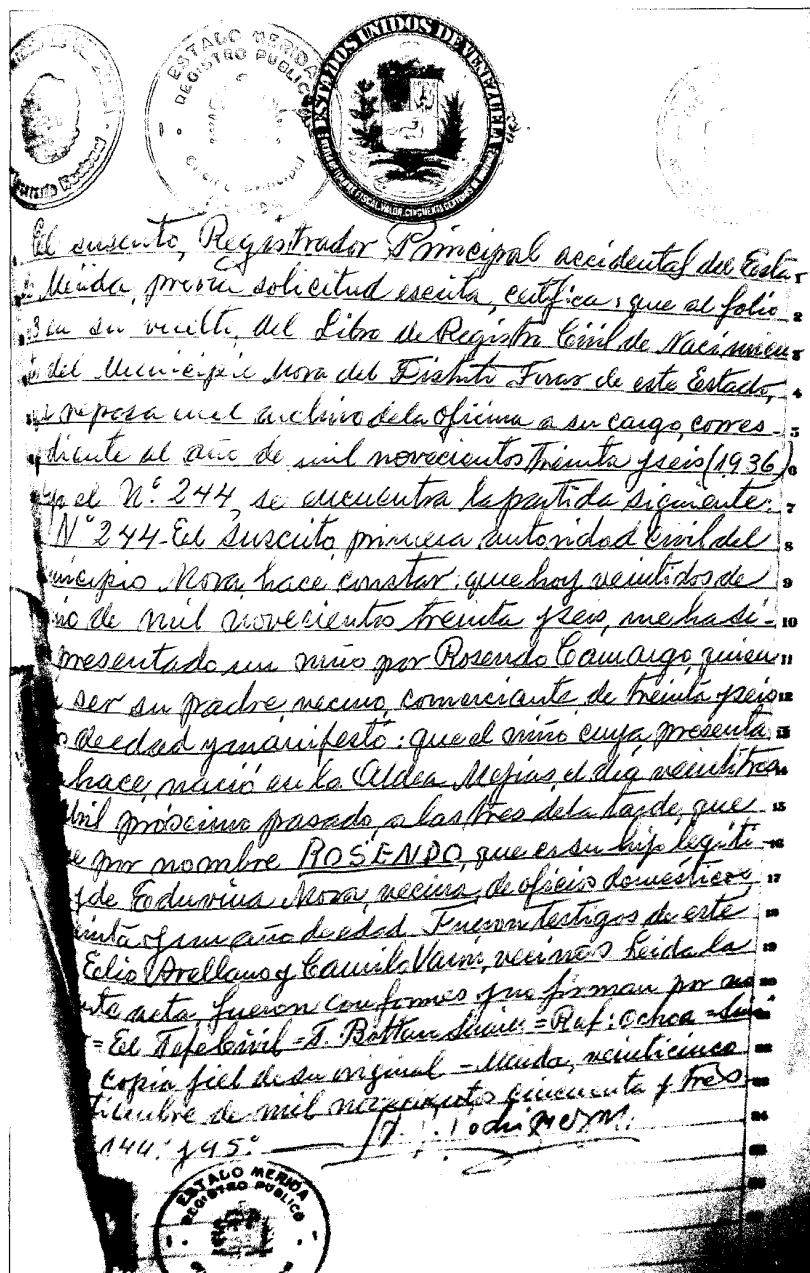 ESTADO MERIDA
REGISTRO PUBLICO
ESTADOS UNIDOS DE VENEZUELA
El suscrito, Registrador Principal accidental del Esta 1
Merida, previa solicitud escrita, certifica: que al folio 2
3 en su vuelto, del Libro de Registro Civil de Nacimien 3
del Municipio Mora del Distrito Tovar de este Estado, 4
reposa en el archivo de la oficina a su cargo, corres- 5
diente al año de mil novecientos treinta y seis (1936) 6
el Nº 244, se encuentra la partida siguiente: 7
Nº 244 - El suscrito, primera autoridad civil del 8
unicipio Mora, hace constar: que hoy veintidos de 9
nio de mil novecientos treinta y seis, me ha si- 10
presentado un niño por Rosendo Camargo, quien 11
ser su padre, vecino, comerciante, de treinta y seis 12
s de edad y manifestó: que el niño cuya presenta 13
hace, nació en la Aldea Mejías, el día veintitres 14
bril próximo pasado, a las tres de la tarde, que 15
e por nombre ROSENDO, que es su hijo legíti- 16
y de Eduviua Mora, vecina, de oficios domésticos, 17
einta y un año de edad. Fueron testigos de este 18
Eelio Arellano y Camilo Varn, vecinos Leida la 19
nte acta, fueron conformes y no firman por no 20
= El Jefe Civil = = Raf: Ochoa = 21
copia fiel de su original - Merida, veinticinco 22
tiembre de mil novecientos cincuenta y tres 23
144º y 95º 24
25
26
27
ESTADO MERIDA
REGISTRO PUBLICO